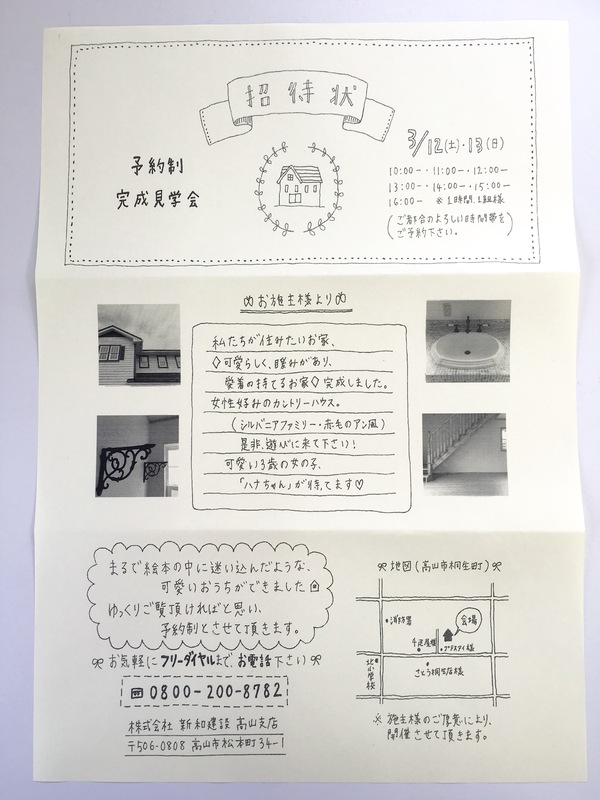 招待状
予約制
完成見学会
3/12(土)・13(日)
10:00〜・11:00〜・12:00〜
13:00〜・14:00〜・15:00〜
16:00〜 ※1時間、1組様
(ご都合のよろしい時間帯を
ご予約下さい。)
お施主様より
私たちが住みたいお家、
◇可愛らしく、暖みがあり、
愛着の持てるお家◇完成しました。
女性好みのカントリーハウス。
(シルバニアファミリー・赤毛のアン風)
是非、遊びに来て下さい!
可愛い3歳の女の子、
「ハナちゃん」が待ってます♡
まるで絵本の中に迷い込んだような、
可愛いおうちができました
ゆっくりご覧頂ければと思い、
予約制とさせて頂きます。
お気軽にフリーダイヤルまで、お電話下さい
☎0800-200-8782
株式会社 新和建設 高山支店
〒506-0808 高山市松本町34-1
地図(高山市桐生町)
消防署
会場
北小学校
さとう桐生店様
※施主様のご厚意により、
開催させて頂きます。